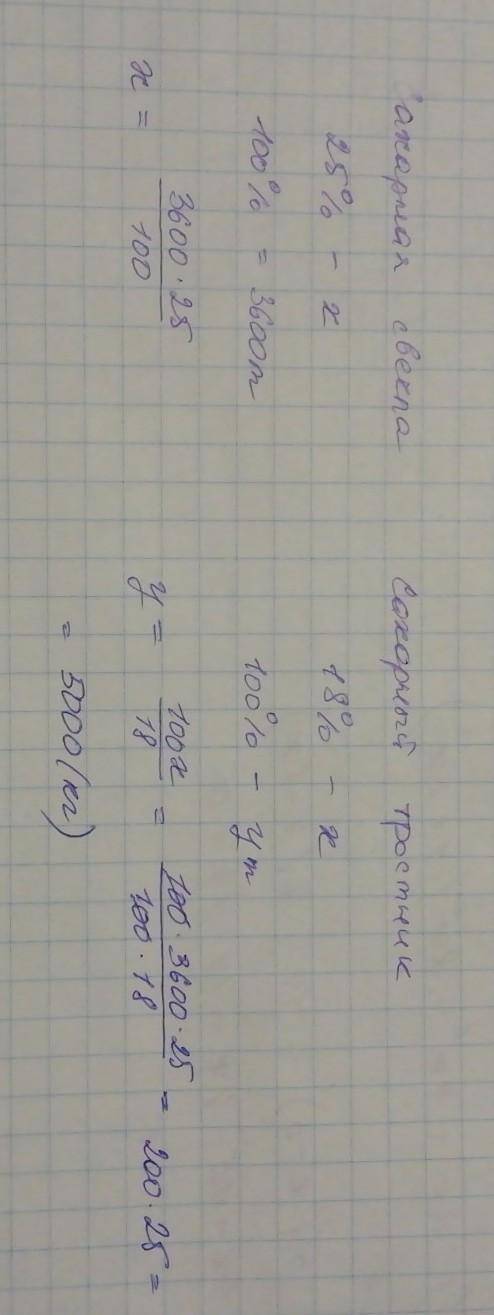 Сахарная свекла
25% - x
100% = 3600т
x = 3600 · 25 / 100
Сахарный тростник
18% - x
100% - y т
y = 100x / 18 = 100 · 3600 · 25 / 100 · 18 = 200 · 25 =
= 5000 (кг)